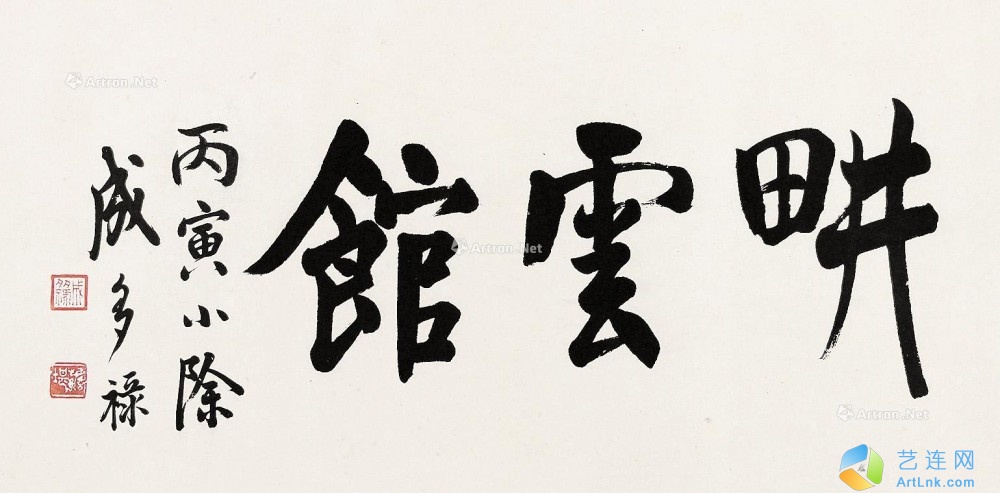 畊雲館
丙寅小除
成多祿
Artron.Net
Artron.Net
Artron.Net
艺连网
ArtLnk.com